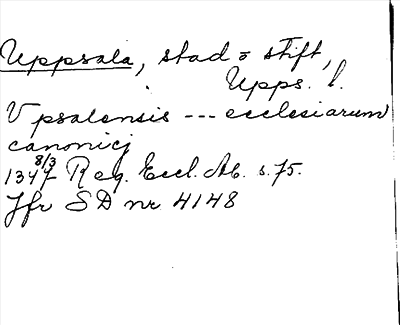 Uppsala, stad o stift,
Upps. l.
Vpsalensis --- ecclesiarum
canonicj
1347 8/3 Reg. Eccl. Ab. s. 75.
Jfr SD nr 4148